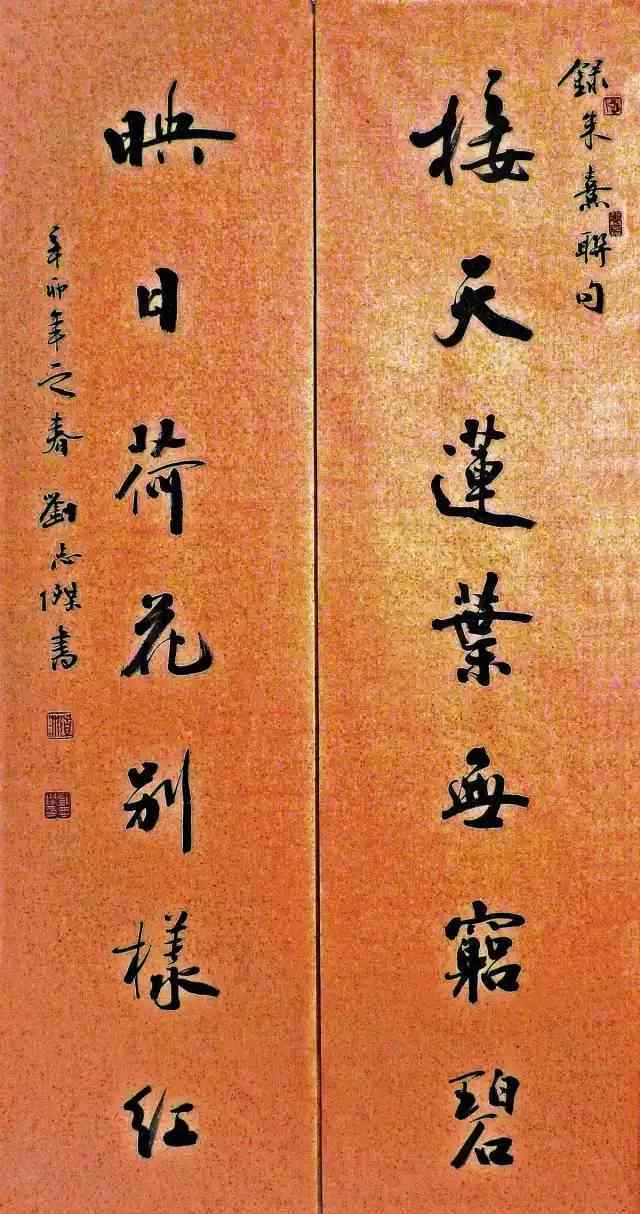 錄朱熹聯句
接天蓮葉無窮碧
映日荷花别樣紅
辛卯年之春劉志傑書